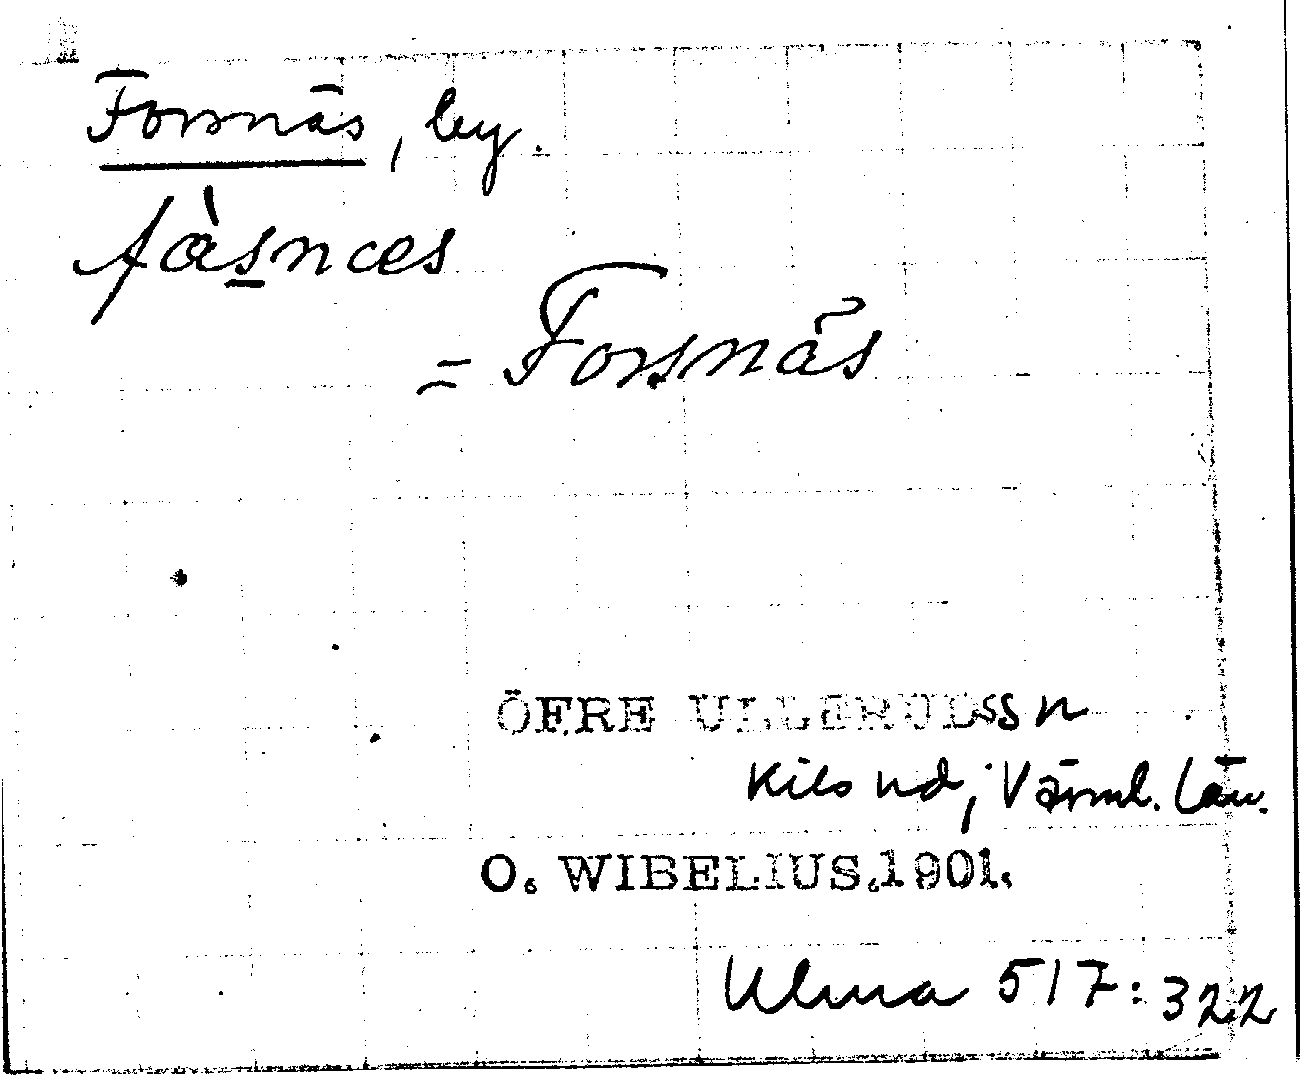 Forsnäs, by.
fàs̲næs
= Forsnäs
ÖFRE ULLERUDS sn
Kils hd, Värml. län.
O. WIBELIUS. 1901.
Ulma 517:322